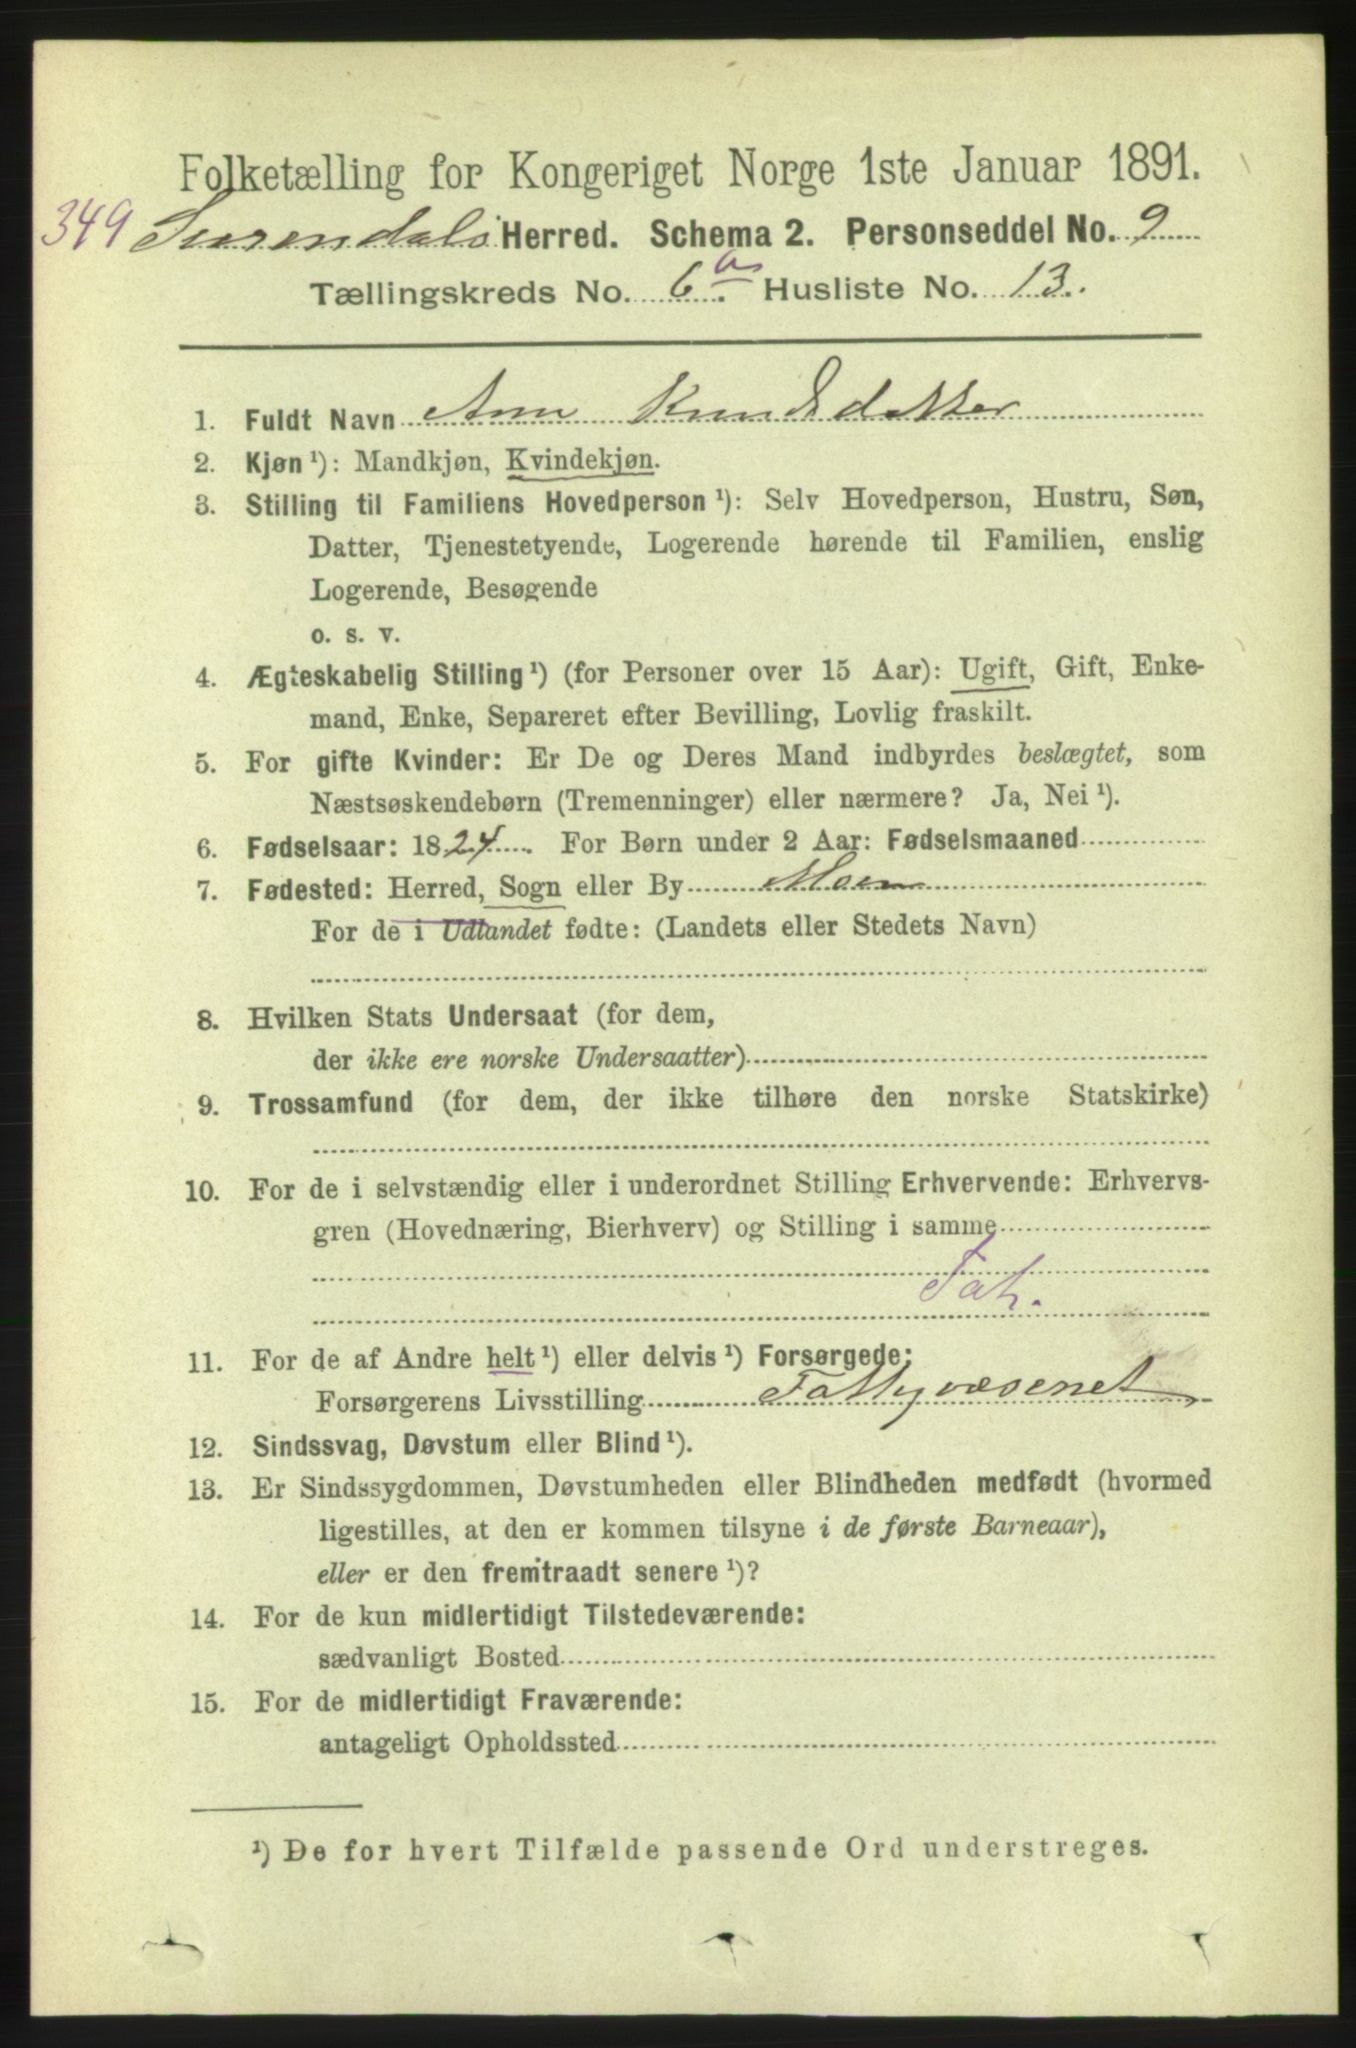 Folketælling for Kongeriget Norge 1ste Januar 1891.
349 Surendals Herred. Schema 2. Personseddel No. 9
Tællingskreds No. 6a. Husliste No. 13.
1. Fuldt Navn Ann Knudsdatter
2. Kjøn ¹): Mandkjøn, Kvindekjøn.
3. Stilling til Familiens Hovedperson ¹): Selv Hovedperson, Hustru, Søn,
Datter, Tjenestetyende, Logerende hørende til Familien, enslig
Logerende, Besøgende
o. s. v.
4. Ægteskabelig Stilling ¹) (for Personer over 15 Aar): Ugift, Gift, Enke-
mand, Enke, Separeret efter Bevilling, Lovlig fraskilt.
5. For gifte Kvinder: Er De og Deres Mand indbyrdes beslægtet, som
Næstsøskendebørn (Tremenninger) eller nærmere? Ja, Nei ¹).
6. Fødselsaar: 1824. For Børn under 2 Aar: Fødselsmaaned
7. Fødested: Herred, Sogn eller By Moen
For de i Udlandet fødte: (Landets eller Stedets Navn)
8. Hvilken Stats Undersaat (for dem,
der ikke ere norske Undersaatter)
9. Trossamfund (for dem, der ikke tilhøre den norske Statskirke)
10. For de i selvstændig eller i underordnet Stilling Erhvervende: Erhvervs-
gren (Hovednæring, Bierhverv) og Stilling i samme
Fat.
11. For de af Andre helt ¹) eller delvis ¹) Forsørgede:
Forsørgerens Livsstilling Fattigvæsenet
12. Sindssvag, Døvstum eller Blind ¹).
13. Er Sindssygdommen, Døvstumheden eller Blindheden medfødt (hvormed
ligestilles, at den er kommen tilsyne i de første Barneaar),
eller er den fremtraadt senere ¹)?
14. For de kun midlertidigt Tilstedeværende:
sædvanligt Bosted
15. For de midlertidigt Fraværende:
antageligt Opholdssted
¹) De for hvert Tilfælde passende Ord understreges.